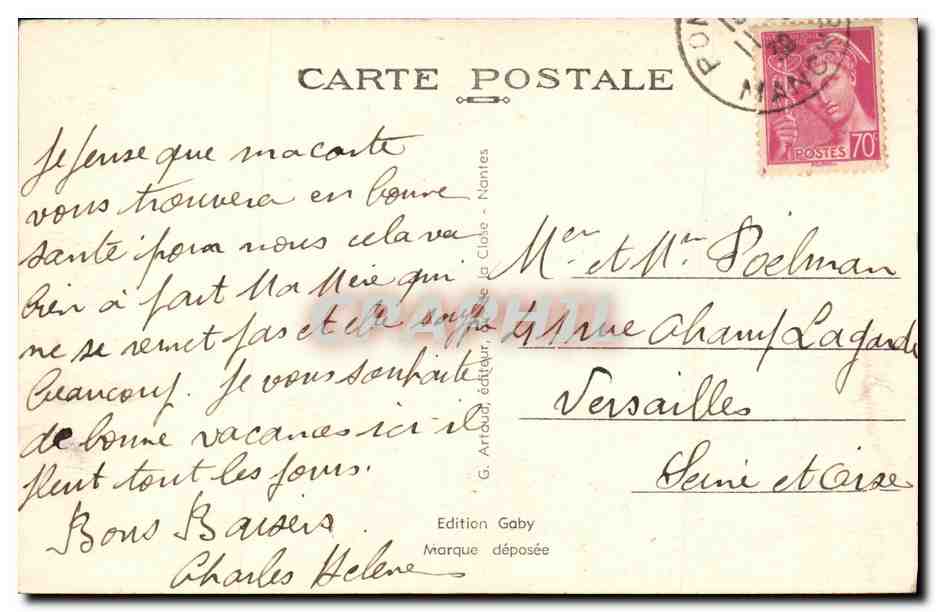 CARTE POSTALE
PON
MANCHE
POSTES 70c
Je pense que ma carte
vous trouvera en bonne
santé pour nous cela va
bien à part Ma Mère qui
ne se remet pas et elle souffre
beaucoup. Je vous souhaite
de bonne vacances ici il
pleut tout les jours.
Bons Baisers
Charles Helene
G. Artaud, éditeur, de la Close - Nantes
Mer et Mr Poëlman
41 rue Champ Lagarde
Versailles
Seine et Oise
Edition Gaby
Marque déposée
CPAPHIL